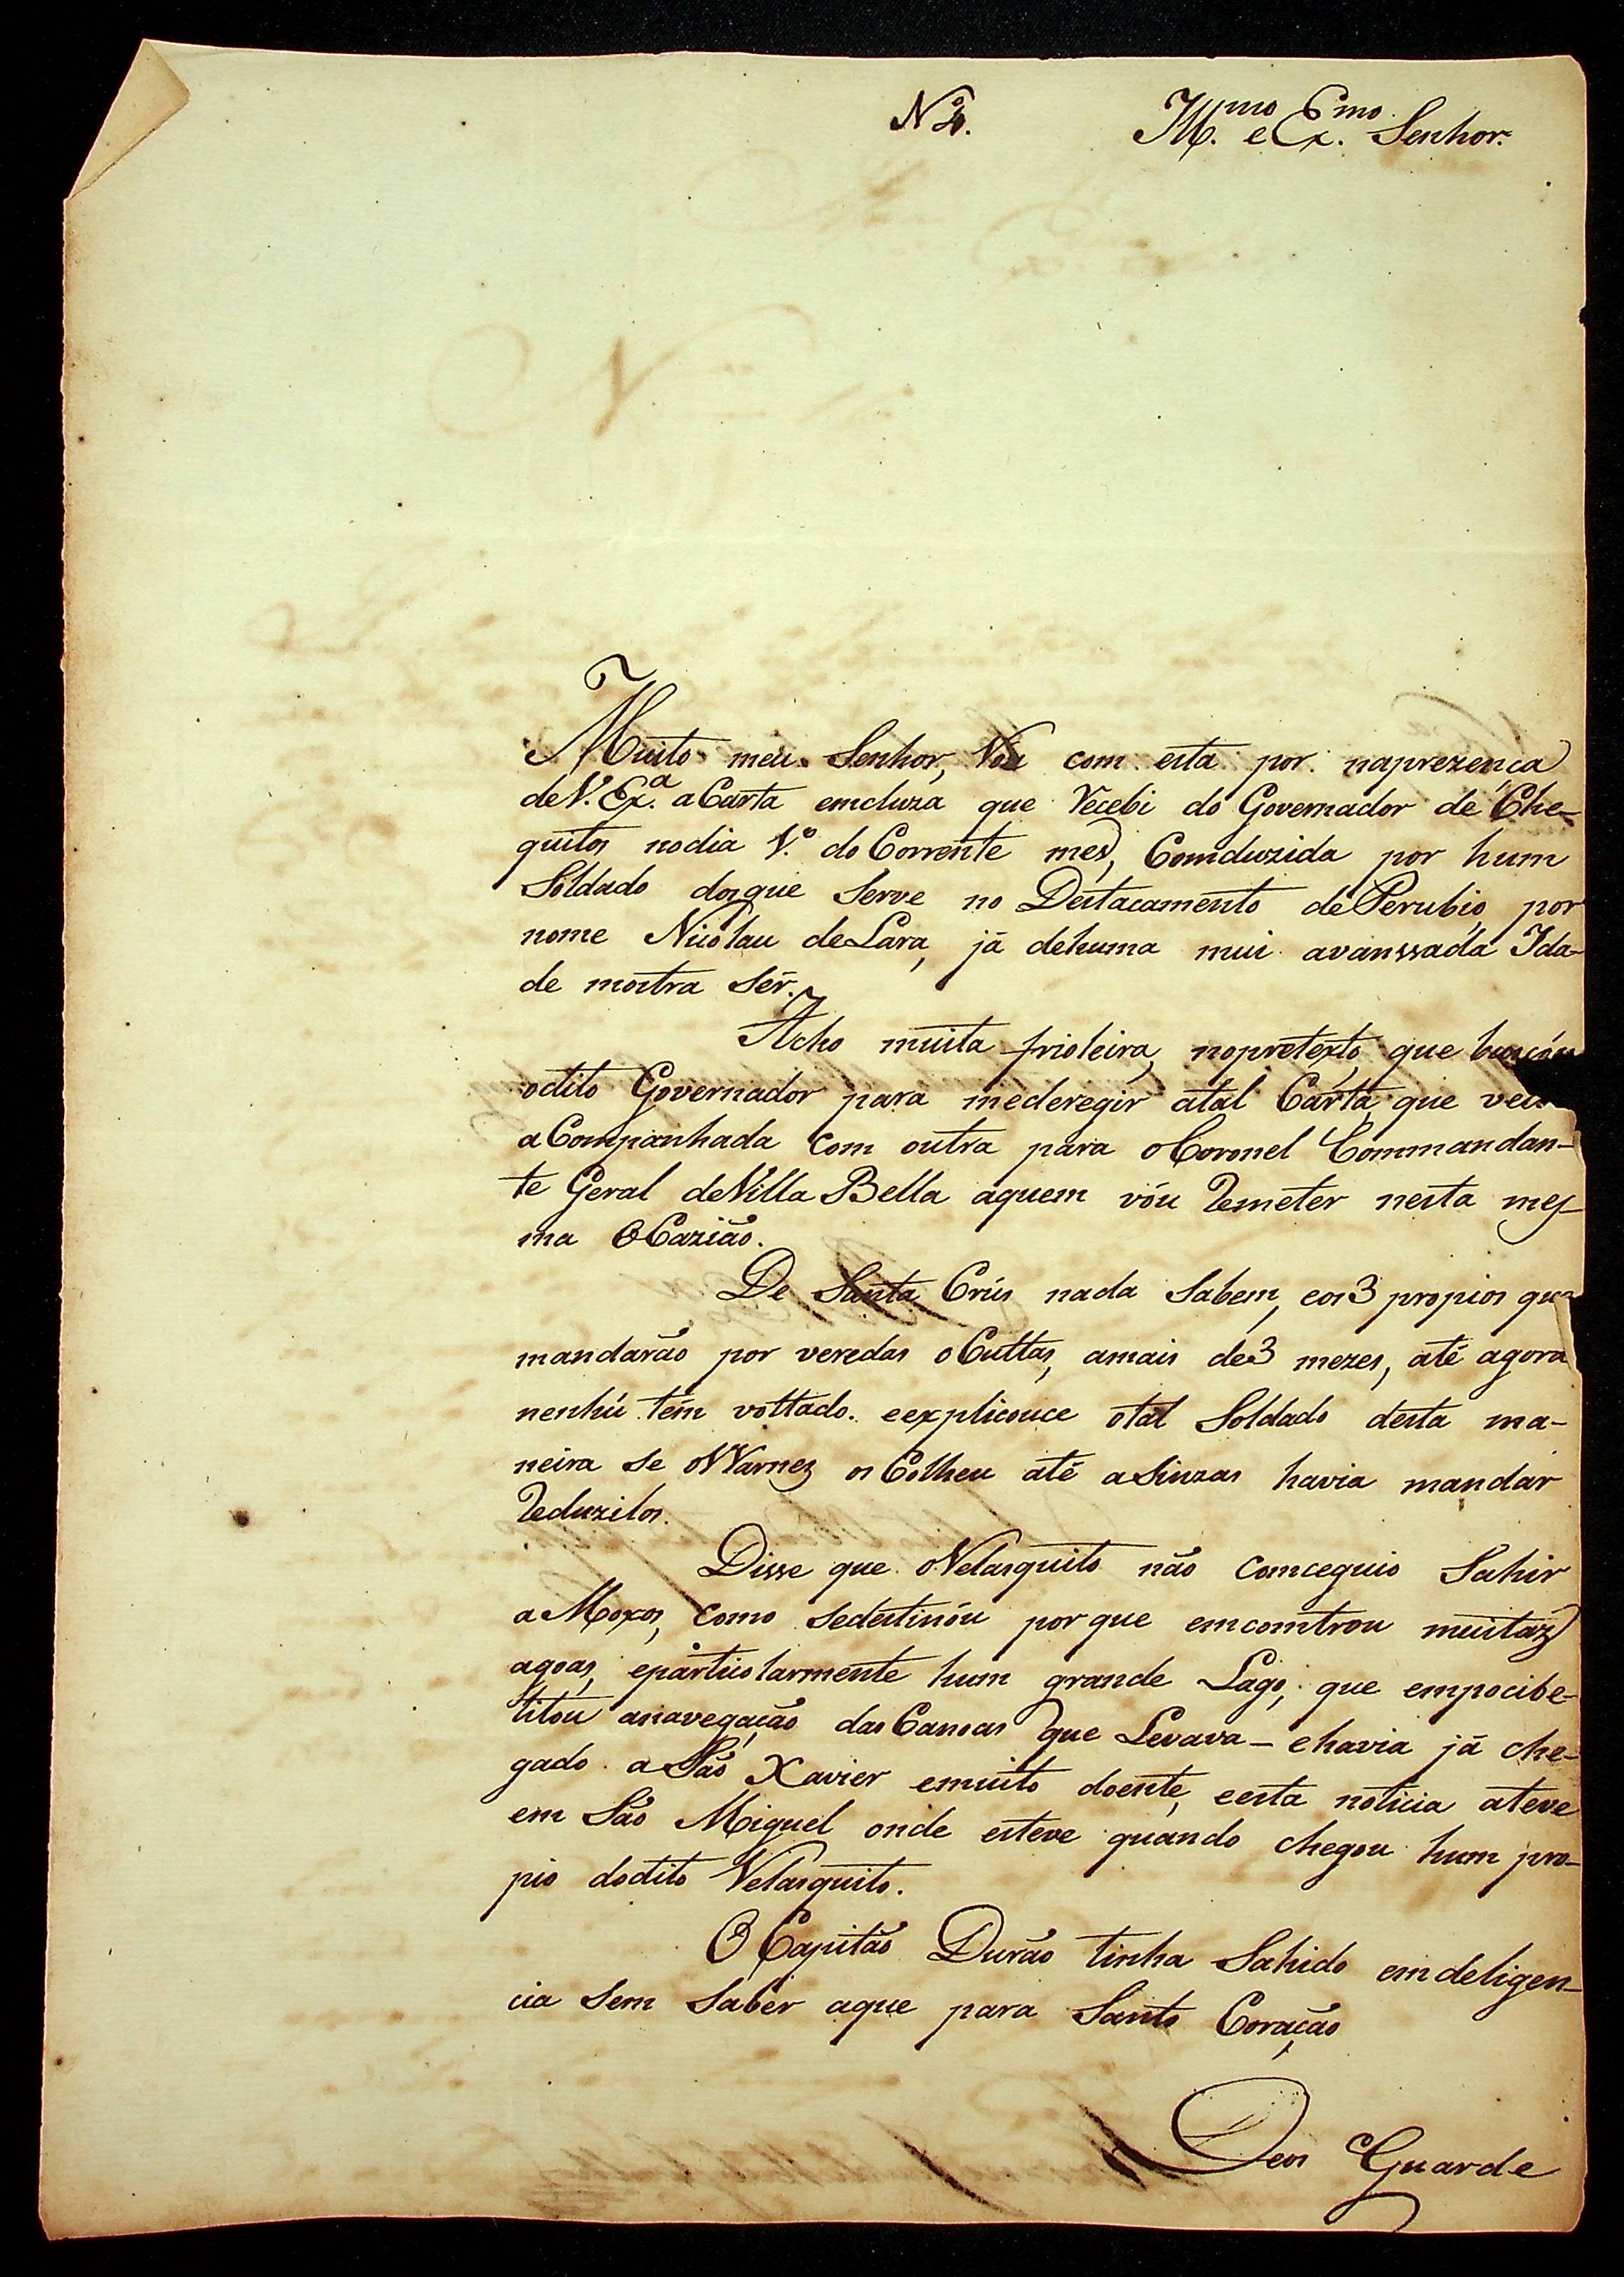 Nº 2.
Ill.mo e Ex.mo Senhor.
Muito meu Senhor, Vou com esta por naprezença
deV. Ex.a aCarta emcluza que Recebi do Governador de Che-
quitos nodia 1.º do Corrente mes, Comduzida por hum
Soldado dosque Serve no Destacamento dePerubio, por
nome Nicolau deLara, já dehuma mui avanssada Ida-
de mostra Sér.
Acho muita frioleira, nopretexto, que buscou
odito Governador para mederegir atal Carta, que veio
aCompanhada Com outra para oCoronel Commandan-
te Geral deVilla Bella aquem vóu Remeter nesta mes-
ma OCazião.
De Santa Crús nada Sabem, eos3 propios que
mandarão por veredas oCultas, amais de3 mezes, até agora
nenhú tem voltado. eexplicouce otal Soldado desta ma-
neira se oWarnes os Colheu até aSinzas havia mandar
Reduzilos.
Disse que oVelasquito não Comceguio Sahir
aMoxos, Como Sedestinóu por que emcomtrou muitas
agoas, eparticolarmente hum grande Lago, que empocibe-
litou anavegação das Canoas que Levava - ehavia já che-
gado a São Xavier emuito doente, eesta noticia ateve
em São Miguel onde esteve quando chegou hum pro-
pio dodito Velasquito.
O Capitão Durão tinha Sahido emdeligen-
cia Sem Saber aque para Santo Coração
Deos Guarde